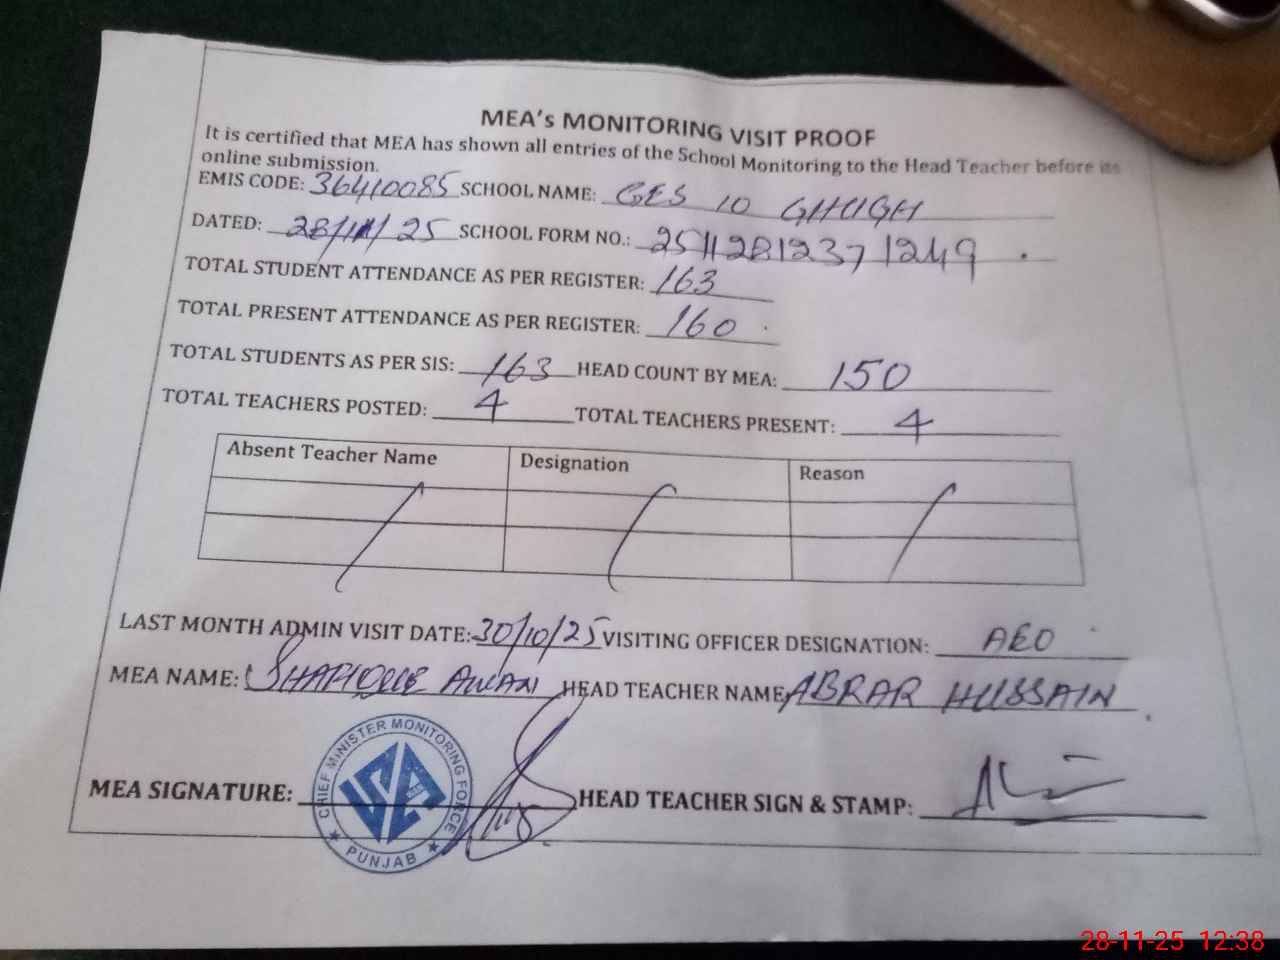 MEA's MONITORING VISIT PROOF
It is certified that MEA has shown all entries of the School Monitoring to the Head Teacher before its
online submission.
EMIS CODE: 36410085 SCHOOL NAME: GES 10 GHUGH
DATED: 28/11/25 SCHOOL FORM NO.: 25112812371249
TOTAL STUDENT ATTENDANCE AS PER REGISTER: 163
TOTAL PRESENT ATTENDANCE AS PER REGISTER: 160
TOTAL STUDENTS AS PER SIS: 163 HEAD COUNT BY MEA: 150
TOTAL TEACHERS POSTED: 4 TOTAL TEACHERS PRESENT: 4
Absent Teacher Name Designation Reason
LAST MONTH ADMIN VISIT DATE: 30/10/25 VISITING OFFICER DESIGNATION: AEO
MEA NAME: SHAFIQUE AWAN HEAD TEACHER NAME ABRAR HUSSAIN
CHIEF MINISTER MONITORING FORCE
PUNJAB
MEA SIGNATURE: HEAD TEACHER SIGN & STAMP:
28-11-25 12:38